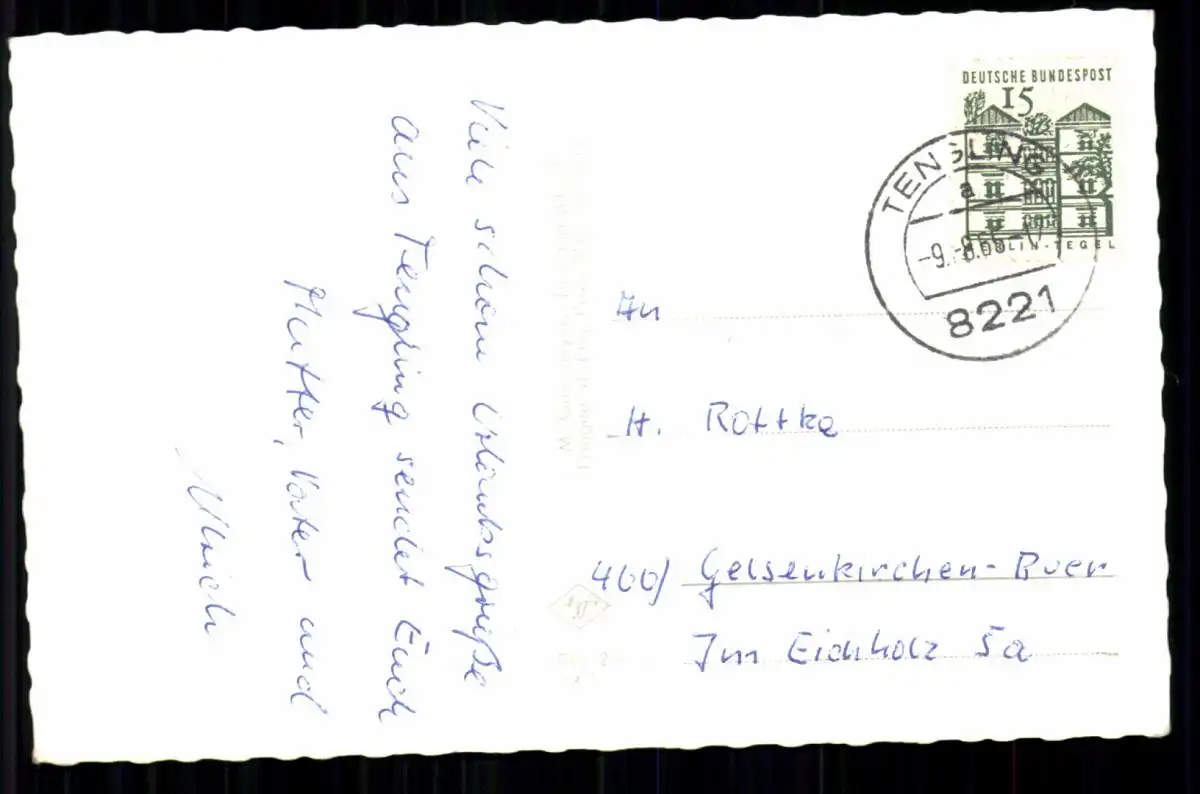 Viele schöne Urlaubsgrüße
aus Tengling sendet Euch
Mutter, Vater und
Ulrich
DEUTSCHE BUNDESPOST
15
BERLIN-TEGEL
TENGLING
a
-9.-8.66-17
8221
An
H. Rottka
4660) Gelsenkirchen-Buer
Im Eichholz 5a